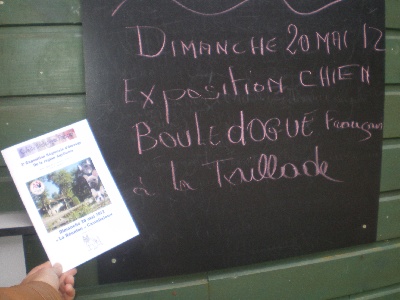 DIMANCHE 20 MAI 12
Exposition CHIEN
BOULEDOGUE Français
à la Taillade
Dimanche 20 mai 2012